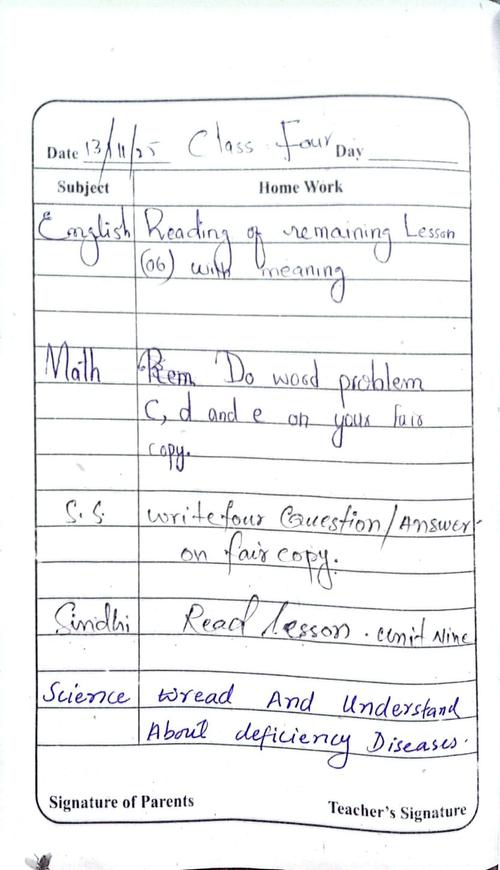 Date 13/11/25 Class Four Day
Subject Home Work
English Reading of remaining Lesson
(06) with meaning
Math Do word problem
C, d and e on your fair
copy.
S.S. write four Question/Answer
on fair copy.
Sindhi Read lesson. unit Nine
Science wread And Understand
About deficiency Diseases.
Signature of Parents Teacher's Signature